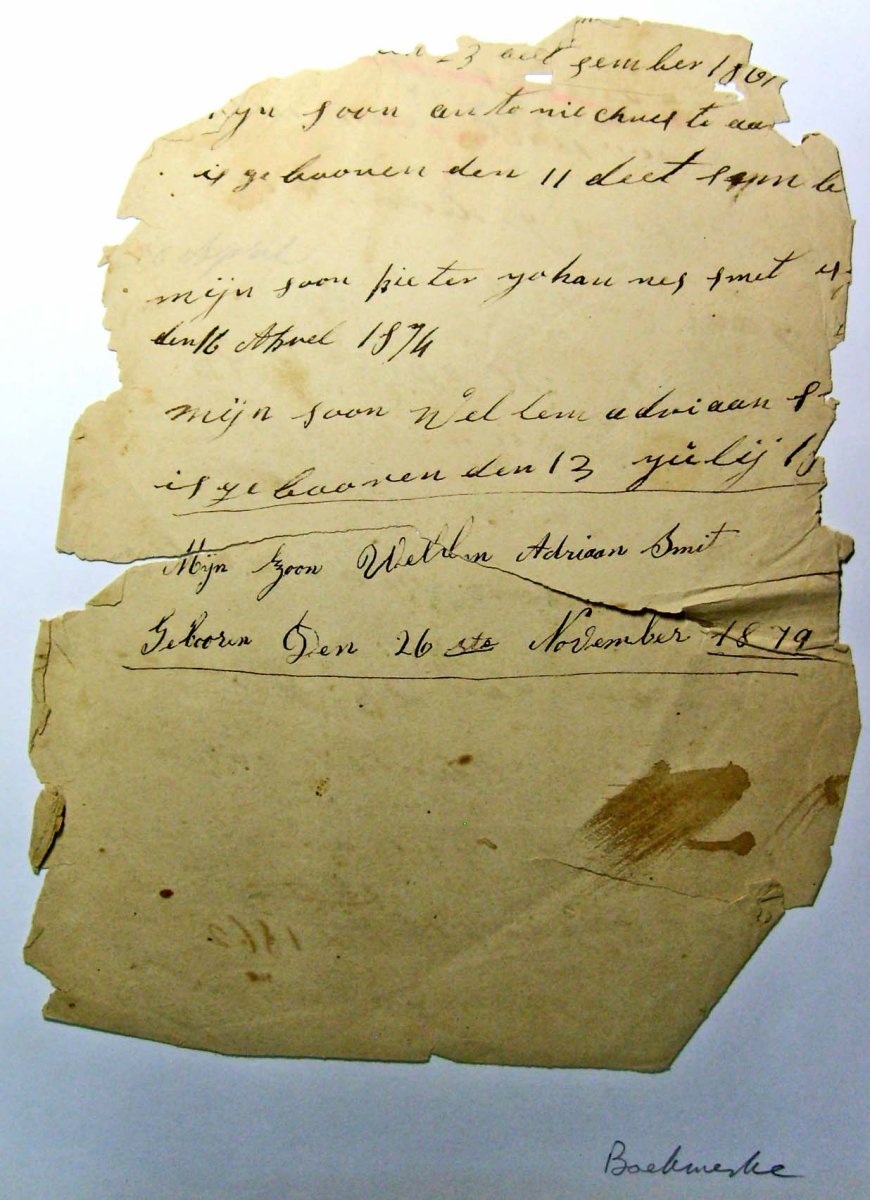 23 deet sember 186
mijn soon antonie
is gebooren den 11 deet
April
mijn soon pieter yohannes smet
den 16 Apryel 1874
mijn soon Wellem adriaan s
is gebooren den 13 yulij 1
Mijn Zoon Wellem Adriaan Smit
Gebooren Den 26 ste November 1879
1862
Boekmerke